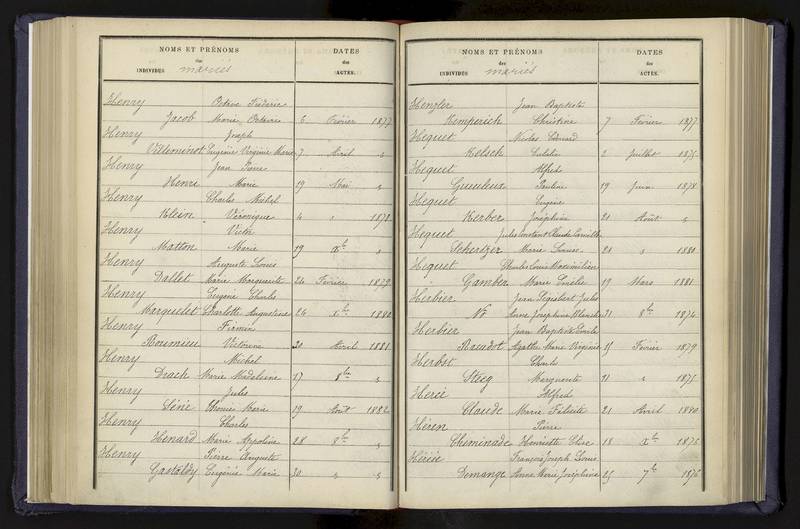 NOMS ET PRÉNOMS DATES
des des
INDIVIDUS mariés ACTES.
Henry Octave Frédéric
Jacob Marie Octavie 6 Février 1877
Henry Joseph
Villeminot Eugénie Virginie Marie 7 Avril "
Henry Jean Pierre
Henri Marie 19 Mai "
Henry Charles Michel
Klein Véronique 4 " 1878
Henry Victor
Matton Marie 19 Xbre "
Henry Auguste Louis
Dallet Marie Marguerite 26 Février 1879
Henry Eugène Charles
Marquelet Charlotte Angeline 26 1880
Henry Firmin
Boumieu Victorine 30 Avril 1881
Henry Michel
Drach Marie Madeleine 17 8bre "
Henry Jules
Séné Marie 19 Août 1882
Henry Charles
Henard Marie Appoline 28 8bre "
Henry Pierre Auguste
Gastaldy Eugénie Marie 30 " "
NOMS ET PRÉNOMS DATES
des des
INDIVIDUS mariés ACTES.
Henzler Jean Baptiste
Kemperich Christine 7 Février 1877
Hequet Nicolas Edouard
Kelsch Eulalie 2 Juillet 1875
Hequet Alfred
Pauline 19 Juin 1878
Hequet Eugène
Kerber Joséphine 21 Août "
Hequet Jules Constant Claude Camille
Skertzer Marie Louise 21 " 1880
Hequet Charles Louis Maximilien
Gamber Marie Emélie 19 Mars 1881
Herbier Jean Sigisbert Jules
Anne Joséphine Blanche 31 8bre 1874
Herbier Jean Baptiste Emile
Baudot Agathe Marie Virginie 15 Février 1879
Herbst Charles
Steeg Marguerite 21 " 1875
Hercé Alfred
Claude Marie Félicité 21 Avril 1880
Héren Pierre
Cheminade Henriette Elise 18 Xbre 1875
François Joseph Louis
Demange Anne Marie Joséphine 25 7bre 1876